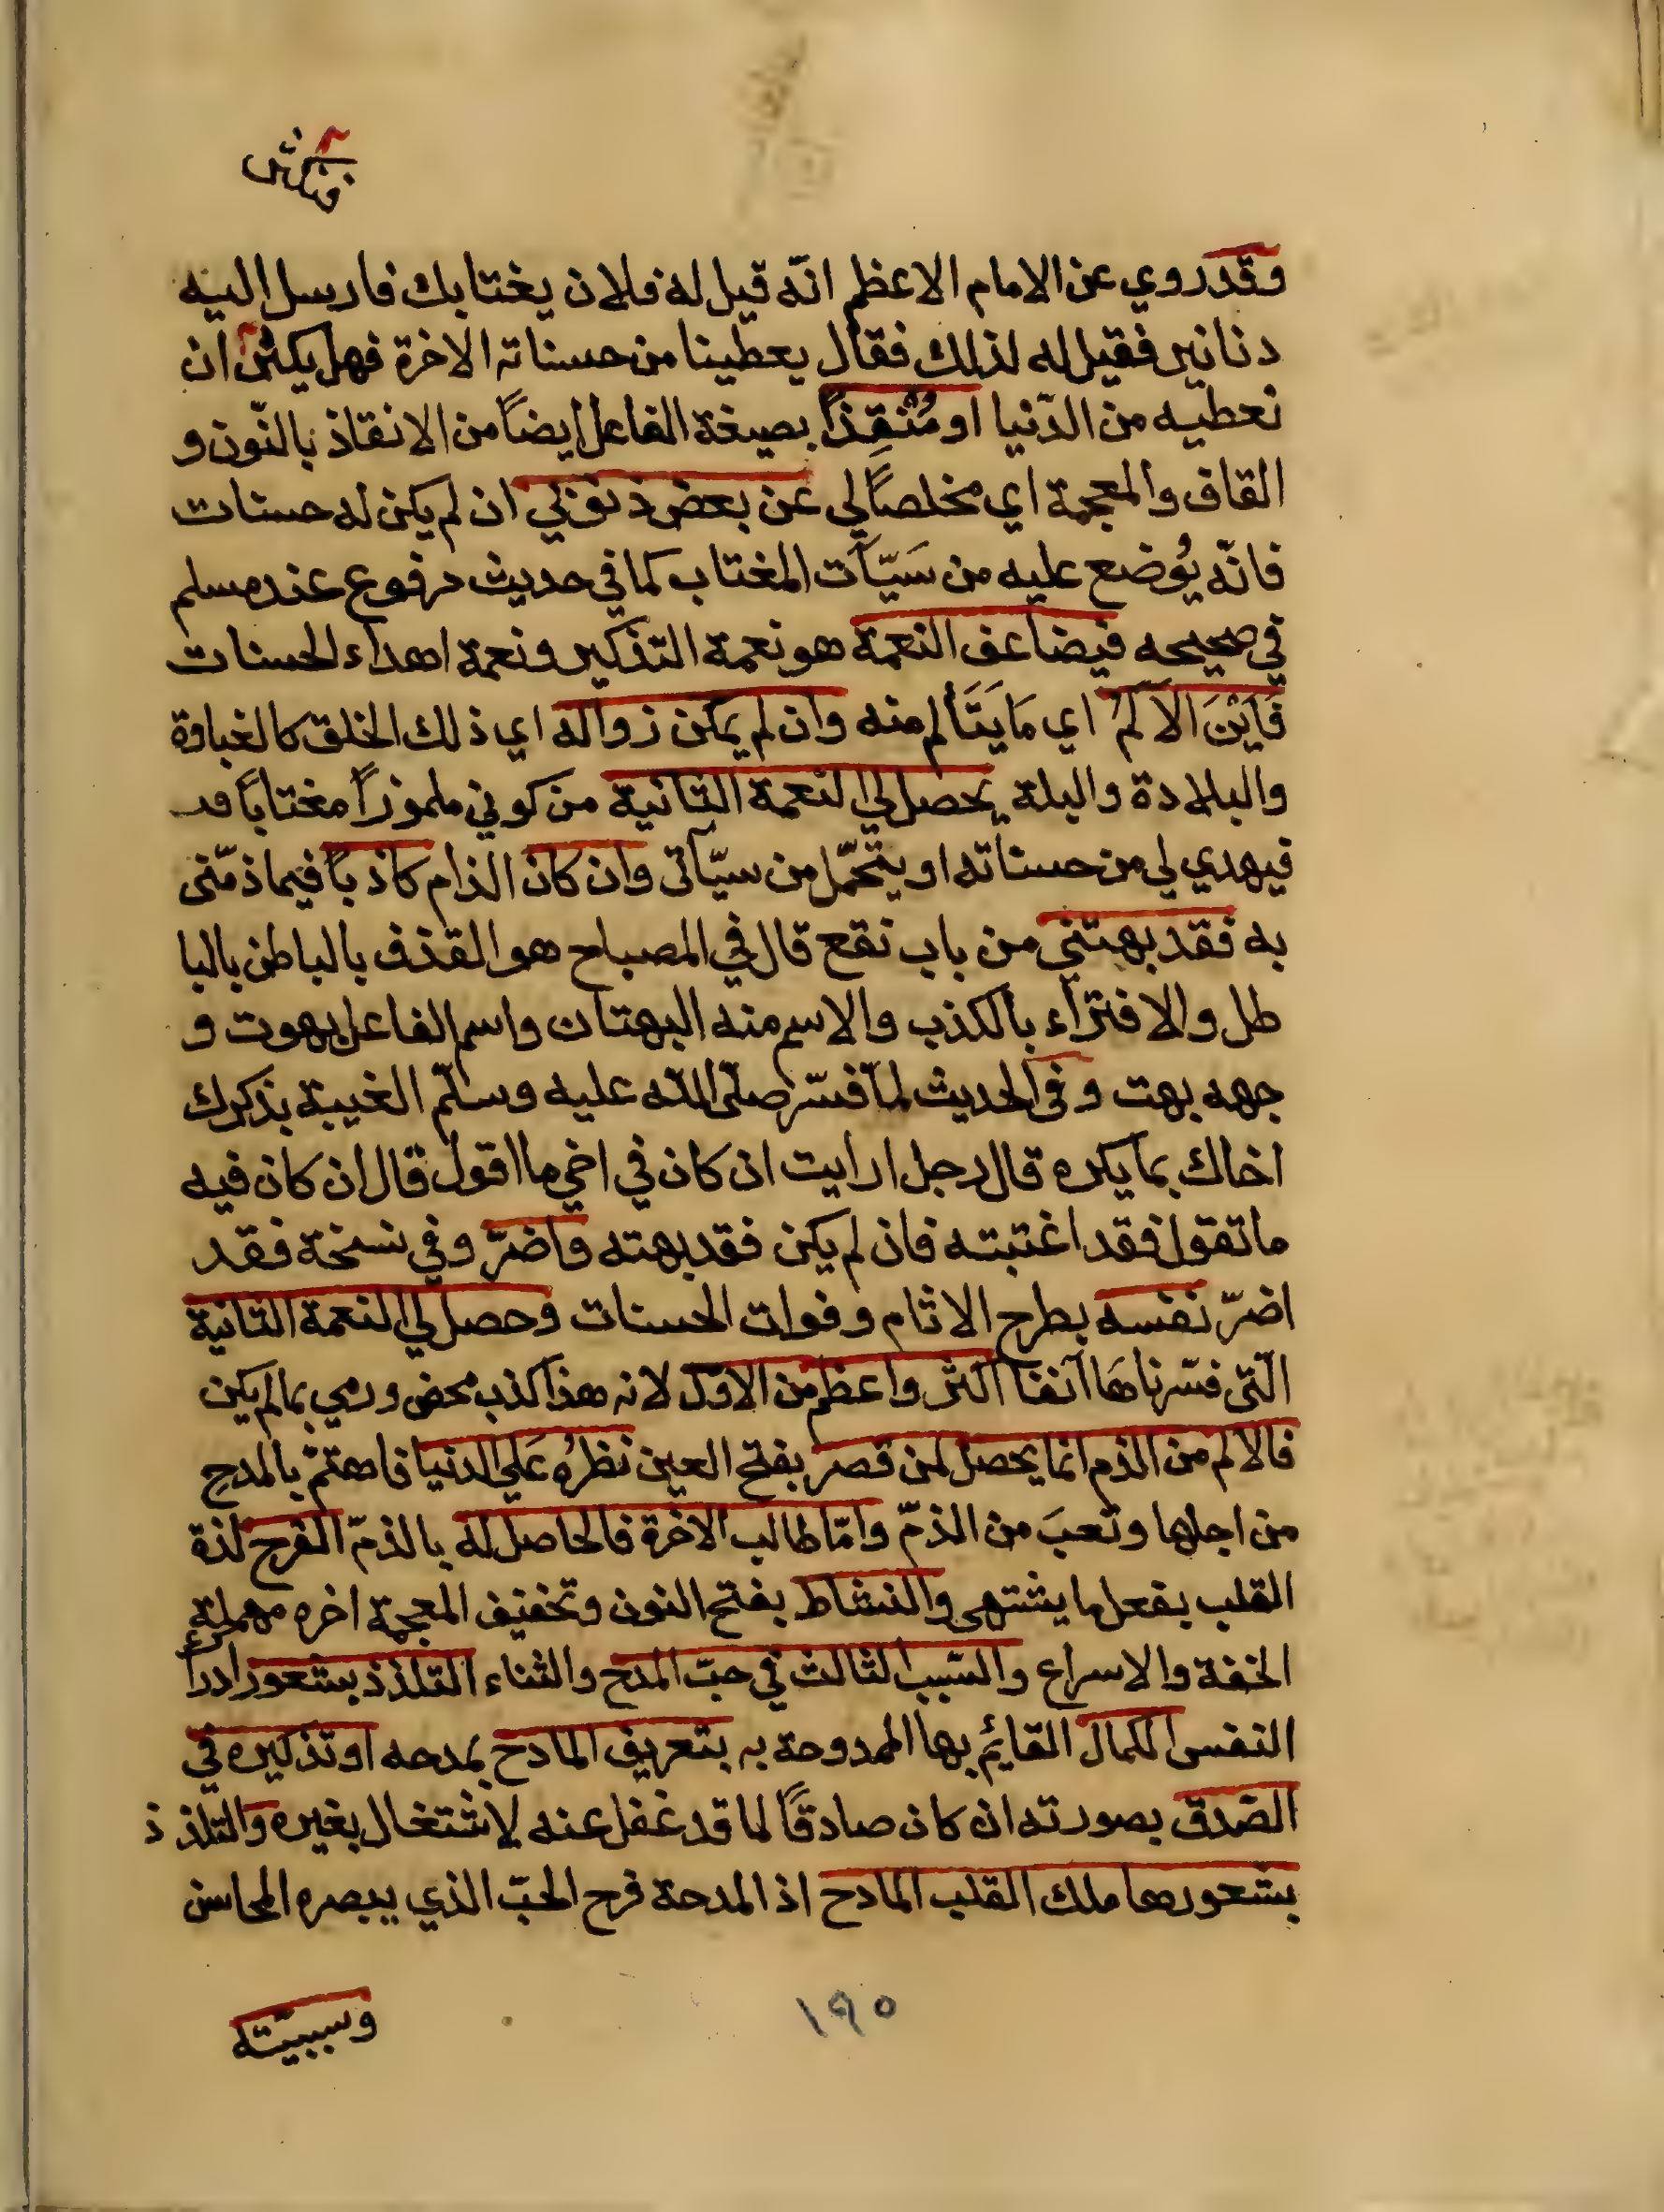 وقد روي عن الامام الاعظم انّه قيل له فلان يغتابك فارسل اليه
دنانير فقيل له لذلك فقال يعطينا من حسناته الاخرة فهل يكثر ان
نعطيه من الدّنيا او مُنْقِذاً بصيغة الفاعل ايضاً من الانقاذ بالنّون و
القاف والمعجمة اي مخلصاً لي عن بعض ذنوبي ان لم يكن له حسنات
فانّه يُوضع عليه من سَيّآت المغتاب كما في حديث مرفوع عند مسلم
في صحيحه فيضاعف النعمة هو نعمة التذكير ونعمة اهداء الحسنات
فَاَيْنَ الاَلَمُ اي مَا يَتَألم منه وان لم يمكن زواله اي ذلك الخلق كالغباوة
والبلادة والبلة يحصل لي النعمة الثانية من كوني ملموزاً مغتاباً قد
فيهدي لي من حسناته او يتحمّل من سيّآتى وان كان الذام كاذباً فيما ذمّنى
به فقد بهتني من باب نقع قال في المصباح هو القذف بالباطن بالبا
طل والافتراء بالكذب والاسم منه البهتان واسم الفاعل بهوت و
جهه بهت وفى الحديث لمّا فسّر صلّى اللّه عليه وسلّم الغيبة بذكرك
اخاك بما يكره قال رجل ارايت ان كان في اخي ما اقول قال ان كان فيه
ما تقول فقد اغتبته فان لم يكن فقد بهته واضرّ وفي نسخة فقد
اضرّ نفسه بطرح الاثام وفوات الحسنات وحصل لي النعمة الثانية
الّتى فسّرناهَا آنفا اكثر واعظم من الاوّل لانه هذا كذب محض ورمي بما لم يكن
فالالم من الذم انما يحصل لمن قصر بفتح العين نظرُه عَلي الدنيا فاهتمّ بالمدح
من اجلها وتعبَ من الذمّ وامّا طالب الاخرة فالحاصل له بالذمّ الفرح لذة
القلب بفعل ما يشتهى والنشاط بفتح النون وتخفيف المعجمة اخره مهملة
الخفة والاسراع والسّبب الثالث في حبّ المدح والثناء التلذذ بشعور ادراك
النفس الكمال القائِم بها الممدوحة به بتعريف المادح بمدحه او تذكيره في
الصّدق بصورته ان كان صادقاً لما قد غفل عنه لاشتغال بغيره والتّلذ ذ
بشعورها ملك القلب المادح اذ المدحة فرح الحبّ الذي يبصره المحاسن
١٩٥
وسببيّته